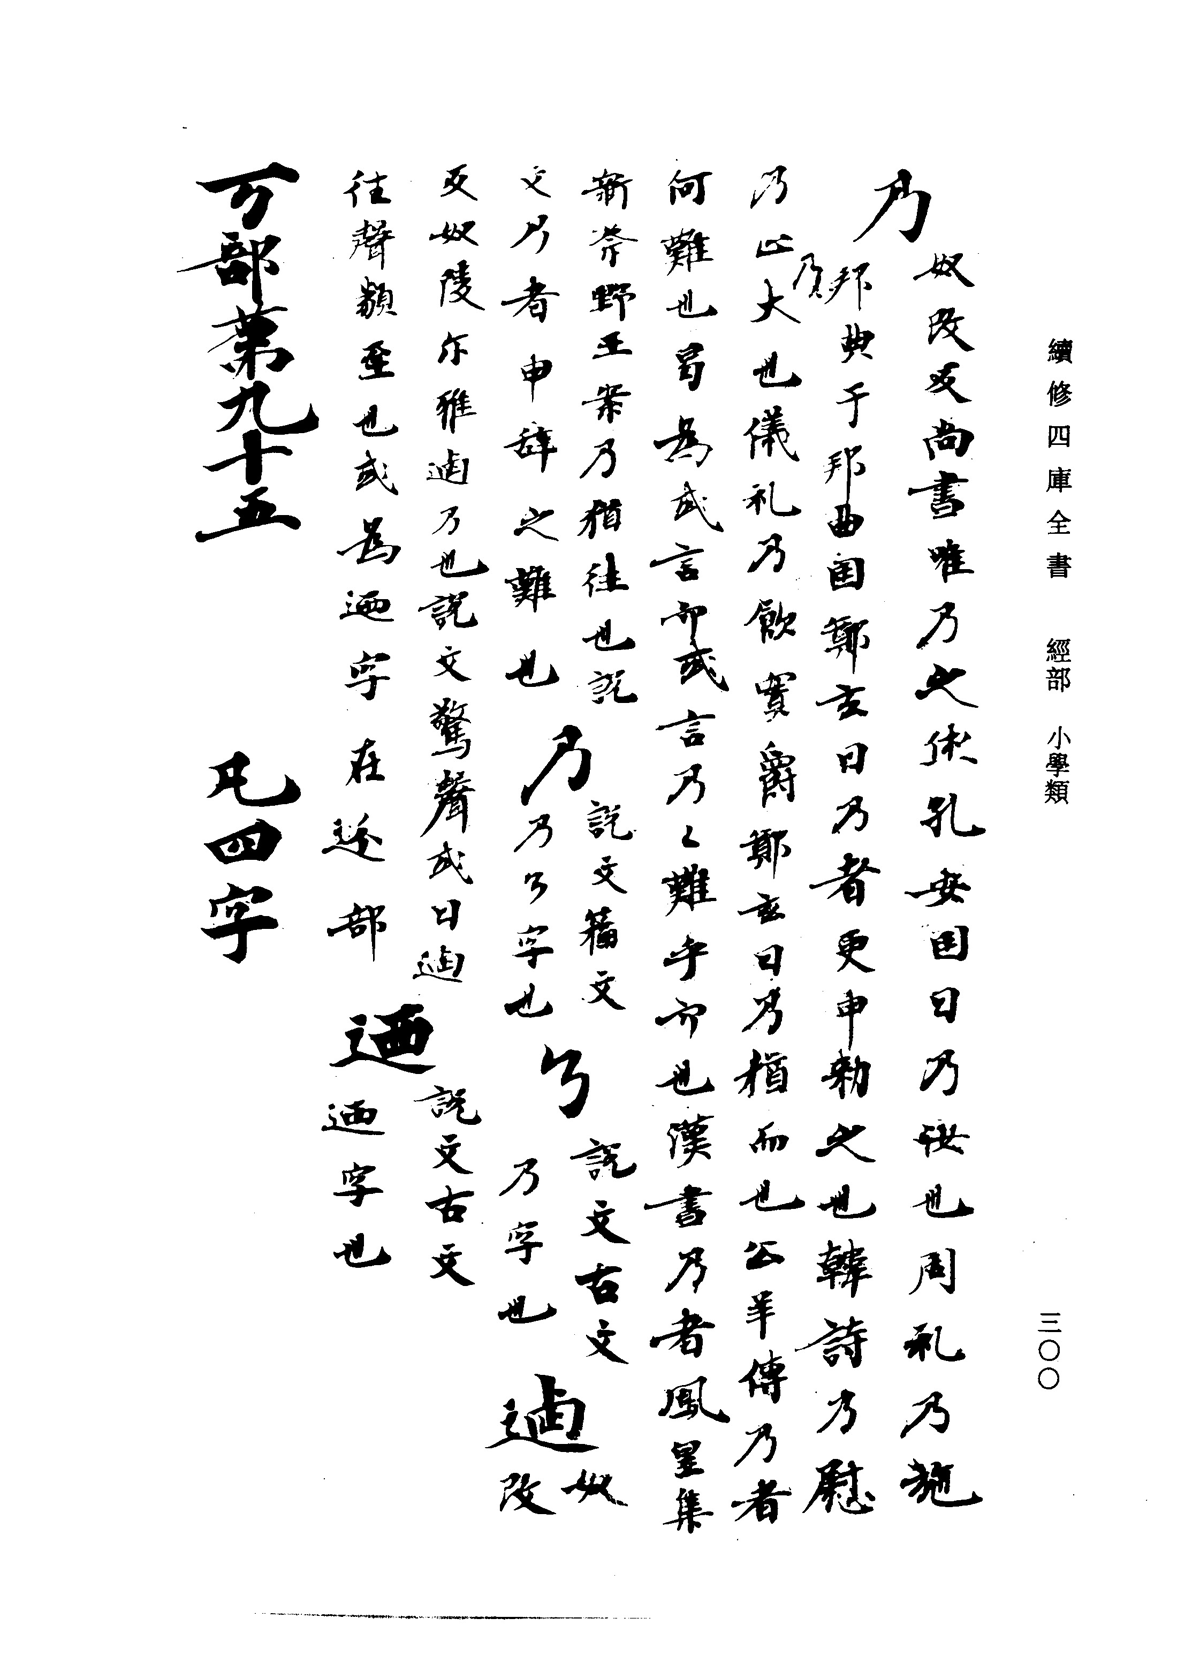 續修四庫全書 經部 小學類
三〇〇
乃
奴改反尚書唯乃之休孔安国曰乃汝也周礼乃施
邦典于邦曲国鄭玄曰乃者更申勑之也韓詩乃慰
乃止大也儀礼乃飲實爵鄭玄曰乃猶而也公羊傳乃者
何難也曷為或言而或言乃乃難乎而也漢書乃者鳳皇集
新蔡野王案乃猶往也說
文乃者申辞之難也
𠄕
說文籀文
乃𠄎字也
𠄎
說文古文
乃字也
逌
奴改
反奴陵尓雅逌乃也說文驚聲或曰逌
往聲類至也或為迺字在辵部
迺
說文古文
迺字也
丂部苐九十五 凡四字